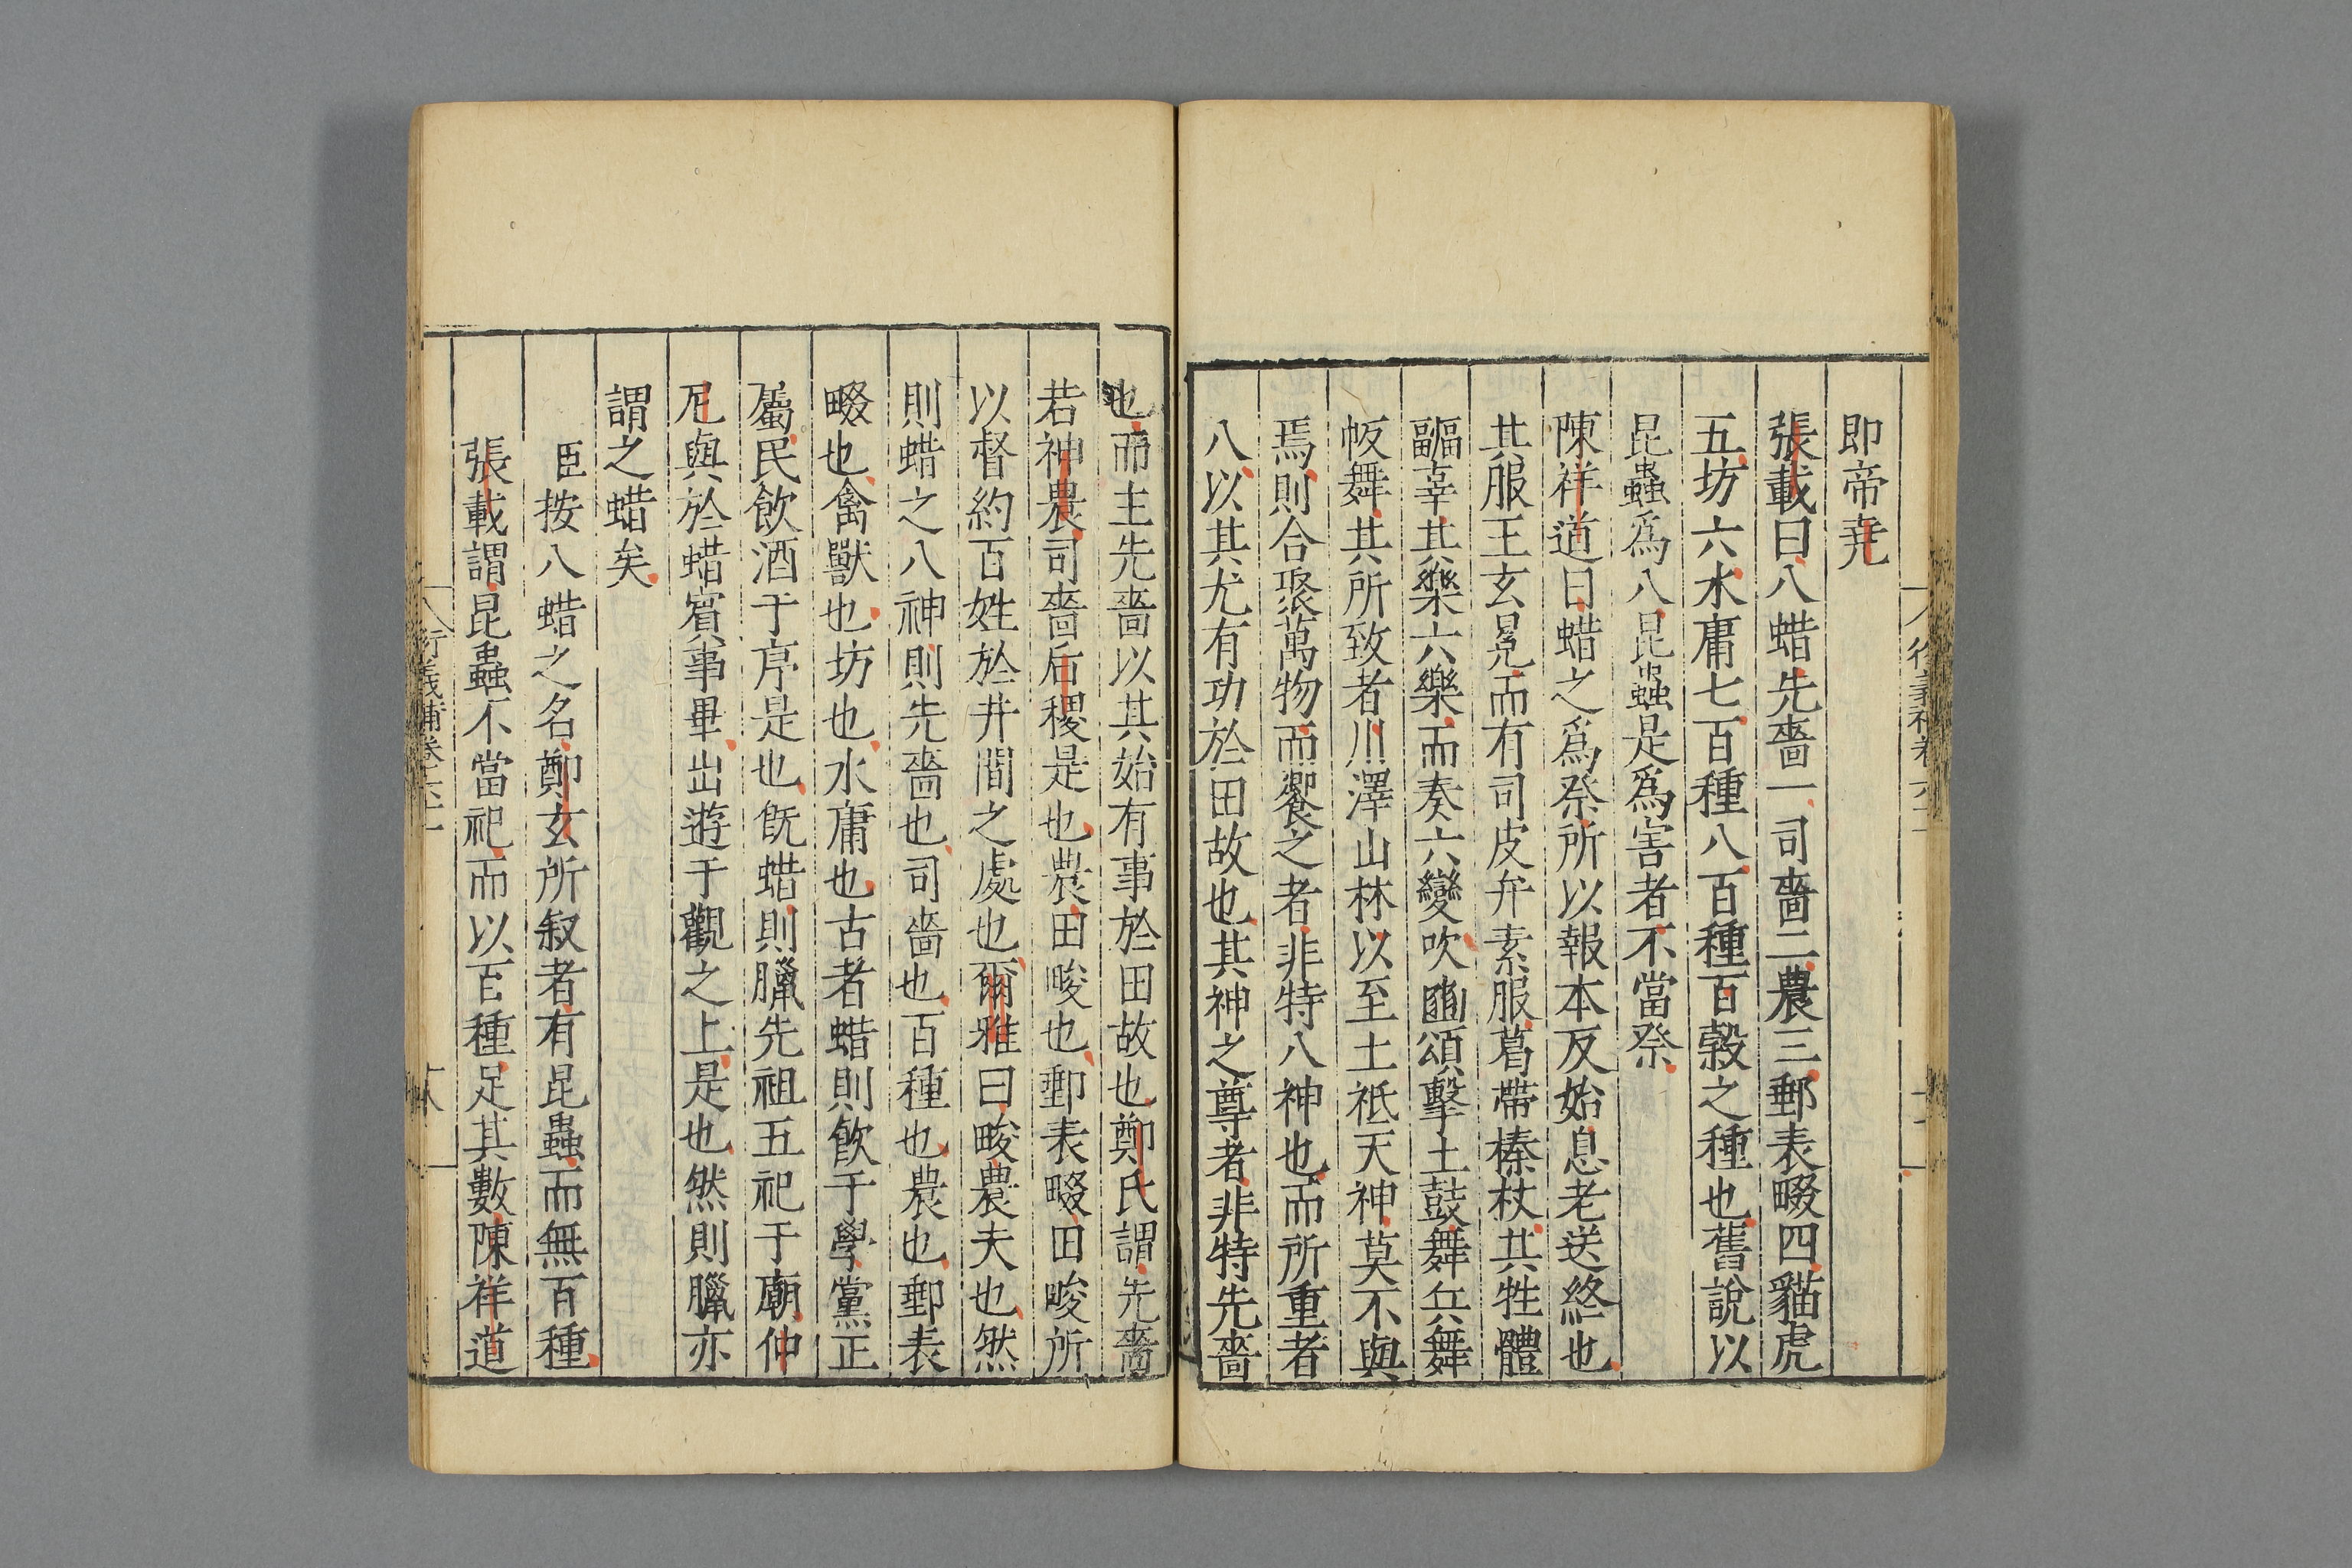 即帝堯
張載曰八蜡先嗇一司嗇二農三郵表畷四貓虎
五坊六水庸七百種八百種百穀之種也舊說以
昆蟲爲八昆蟲是爲害者不當祭
陳祥道曰蜡之爲祭所以報本反始息老送終也
其服王玄冕而有司皮弁素服葛帶榛杖其牲體
疈辜其樂六樂而奏六變吹豳頌擊土鼓舞兵舞
帗舞其所致者川澤山林以至土祗天神莫不與
焉則合聚萬物而饗之者非特八神也而所重者
八以其尤有功於田故也其神之尊者非特先嗇
也而主先嗇以其始有事於田故也鄭氏謂先嗇
若神農司嗇后稷是也農田畯也郵表畷田畯所
以督約百姓於井間之處也爾雅曰畯農夫也然
則蜡之八神則先嗇也司嗇也百種也農也郵表
畷也禽獸也坊也水庸也古者蜡則飲于學黨正
屬民飲酒于序是也旣蜡則臘先祖五祀于廟仲
尼與於蜡賓事畢出遊于觀之上是也然則臘亦
謂之蜡矣
臣按八蜡之名鄭玄所叙者有昆蟲而無百種
張載謂昆蟲不當祀而以百種足其數陳祥道
衍義補卷六十